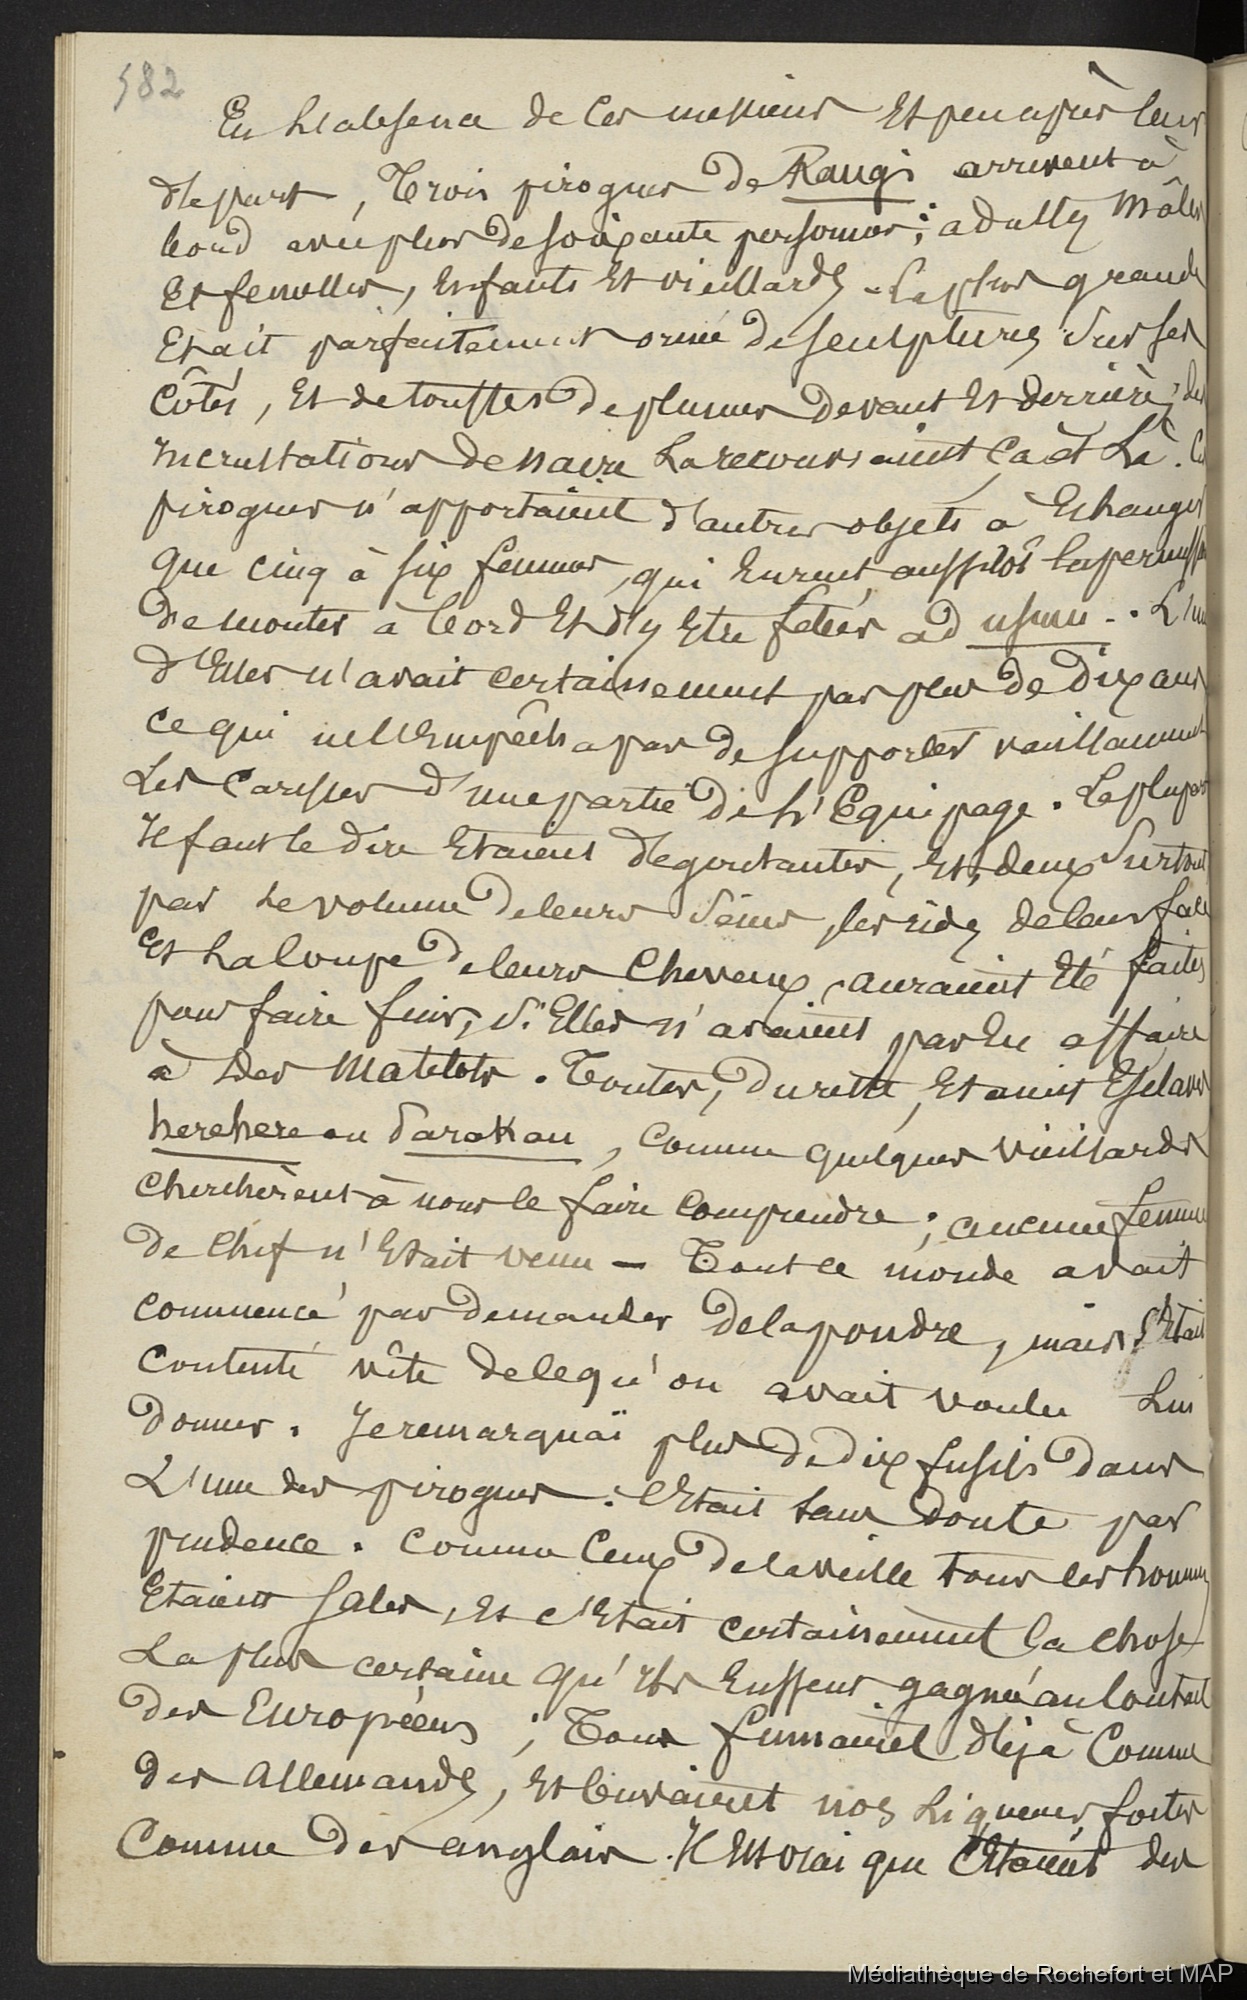 582
En l'absence de ces messieurs et peu après leur
départ, trois pirogues de Rangi arrivent à
bord avec plus de soixante personnes; adultes mâles
et femelles, enfants et vieillards. La plus grande
était parfaitement ornée de sculptures sur ses
côtés, et de touffes de plumes devant et derrière; des
incrustations de nacre la recouvraient çà et là. Ces
pirogues n'apportaient d'autres objets à échanger
que cinq à six femmes, qui eurent aussitôt la permission
de monter à bord et d'y être fêtées ad usum.. L'une
d'elles n'avait certainement pas plus de dix ans
ce qui ne l'empêcha pas de supporter vaillamment
les caresses d'une partie de l'équipage. La plupart
il faut le dire étaient dégoutantes, et, deux surtout
par le volume de leurs seins, les rides de leur face
et la coupe de leurs cheveux, auraient été faites
pour faire fuir, si elles n'avaient pas eu affaire
à des matelots. Toutes, du reste, étaient esclaves
herehere ou Tarakau, comme quelques vieillards
cherchèrent à nous le faire comprendre; aucune femme
de chef n'était venue — Tout le monde avait
commencé par demander de la poudre, mais s'était
contenté vite de ce qu'on avait voulu lui
donner. Je remarquai plus de dix fusils dans
l'une des pirogues: c'était sans doute par
prudence. Comme ceux de la veille tous les hommes
étaient sales, et c'était certainement la chose
la plus certaine qu'ils eussent gagnée au contact
des Européens; tous fumaient déjà comme
des allemands, et buvaient nos liqueurs fortes
comme des anglais. Il est vrai que c'étaient des
Médiathèque de Rochefort et MAP